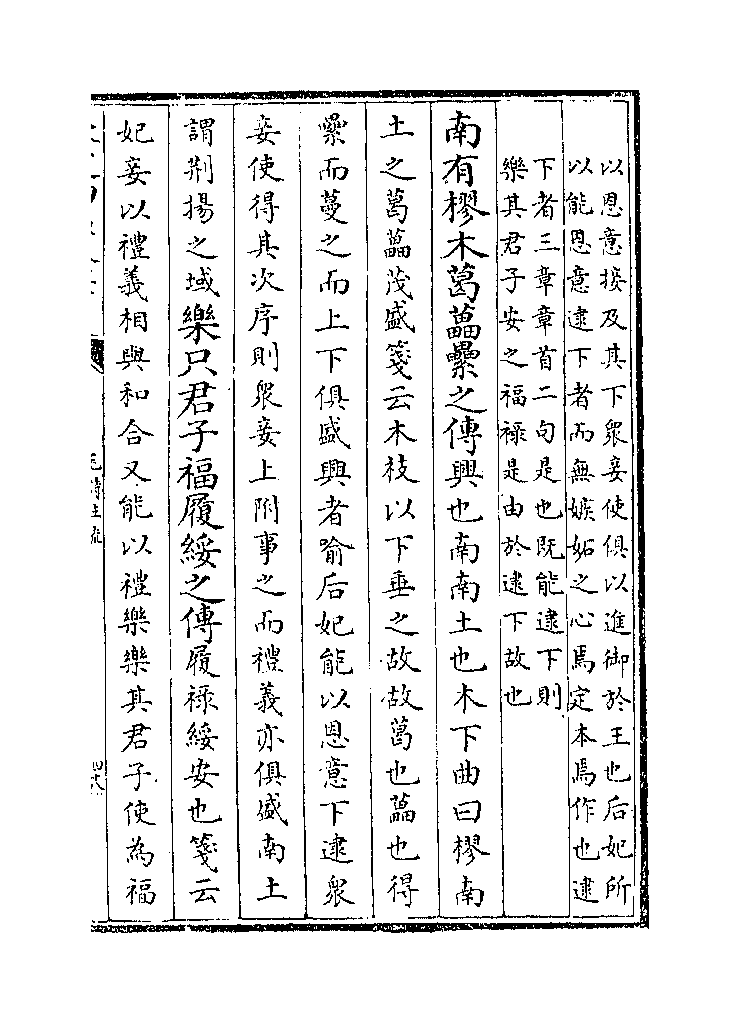 以恩意接及其下衆妾使俱以進御於王也后妃所
以能恩意逮下者而無嫉妬之心焉定本焉作也逮
下者三章章首二句是也既能逮下則
樂其君子安之福祿是由於逮下故也
南有樛木葛藟纍之傳興也南南土也木下曲曰樛南
土之葛藟茂盛箋云木枝以下垂之故故葛也藟也得
纍而蔓之而上下俱盛興者喻后妃能以恩意下逮衆
妾使得其次序則衆妾上附事之而禮義亦俱盛南土
謂荆揚之域樂只君子福履綏之傳履祿綏安也箋云
妃妾以禮義相與和合又能以禮樂樂其君子使為福
毛詩注疏